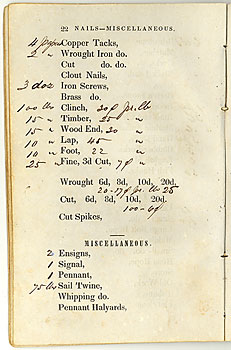 22 NAILS—MISCELLANEOUS.
4 Copper Tacks,
2 " Wrought Iron do.
Cut do. do.
Clout Nails,
3 doz Iron Screws,
Brass do.
100 lbs Clinch, 30 f pr. lb
15 " Timber, 25 "
15 " Wood End, 20 "
10 " Lap, 45 "
10 " Foot, 22 "
25 " Fine, 3d Cut, 7 f "
Wrought 6d, 8d, 10d, 20d.
20-17 f pr. lbs 25
Cut, 6d, 8d, 10d, 20d.
100-6f
Cut Spikes,
MISCELLANEOUS.
2 Ensigns,
1 Signal,
1 Pennant,
75 lbs Sail Twine,
Whipping do.
Pennant Halyards,